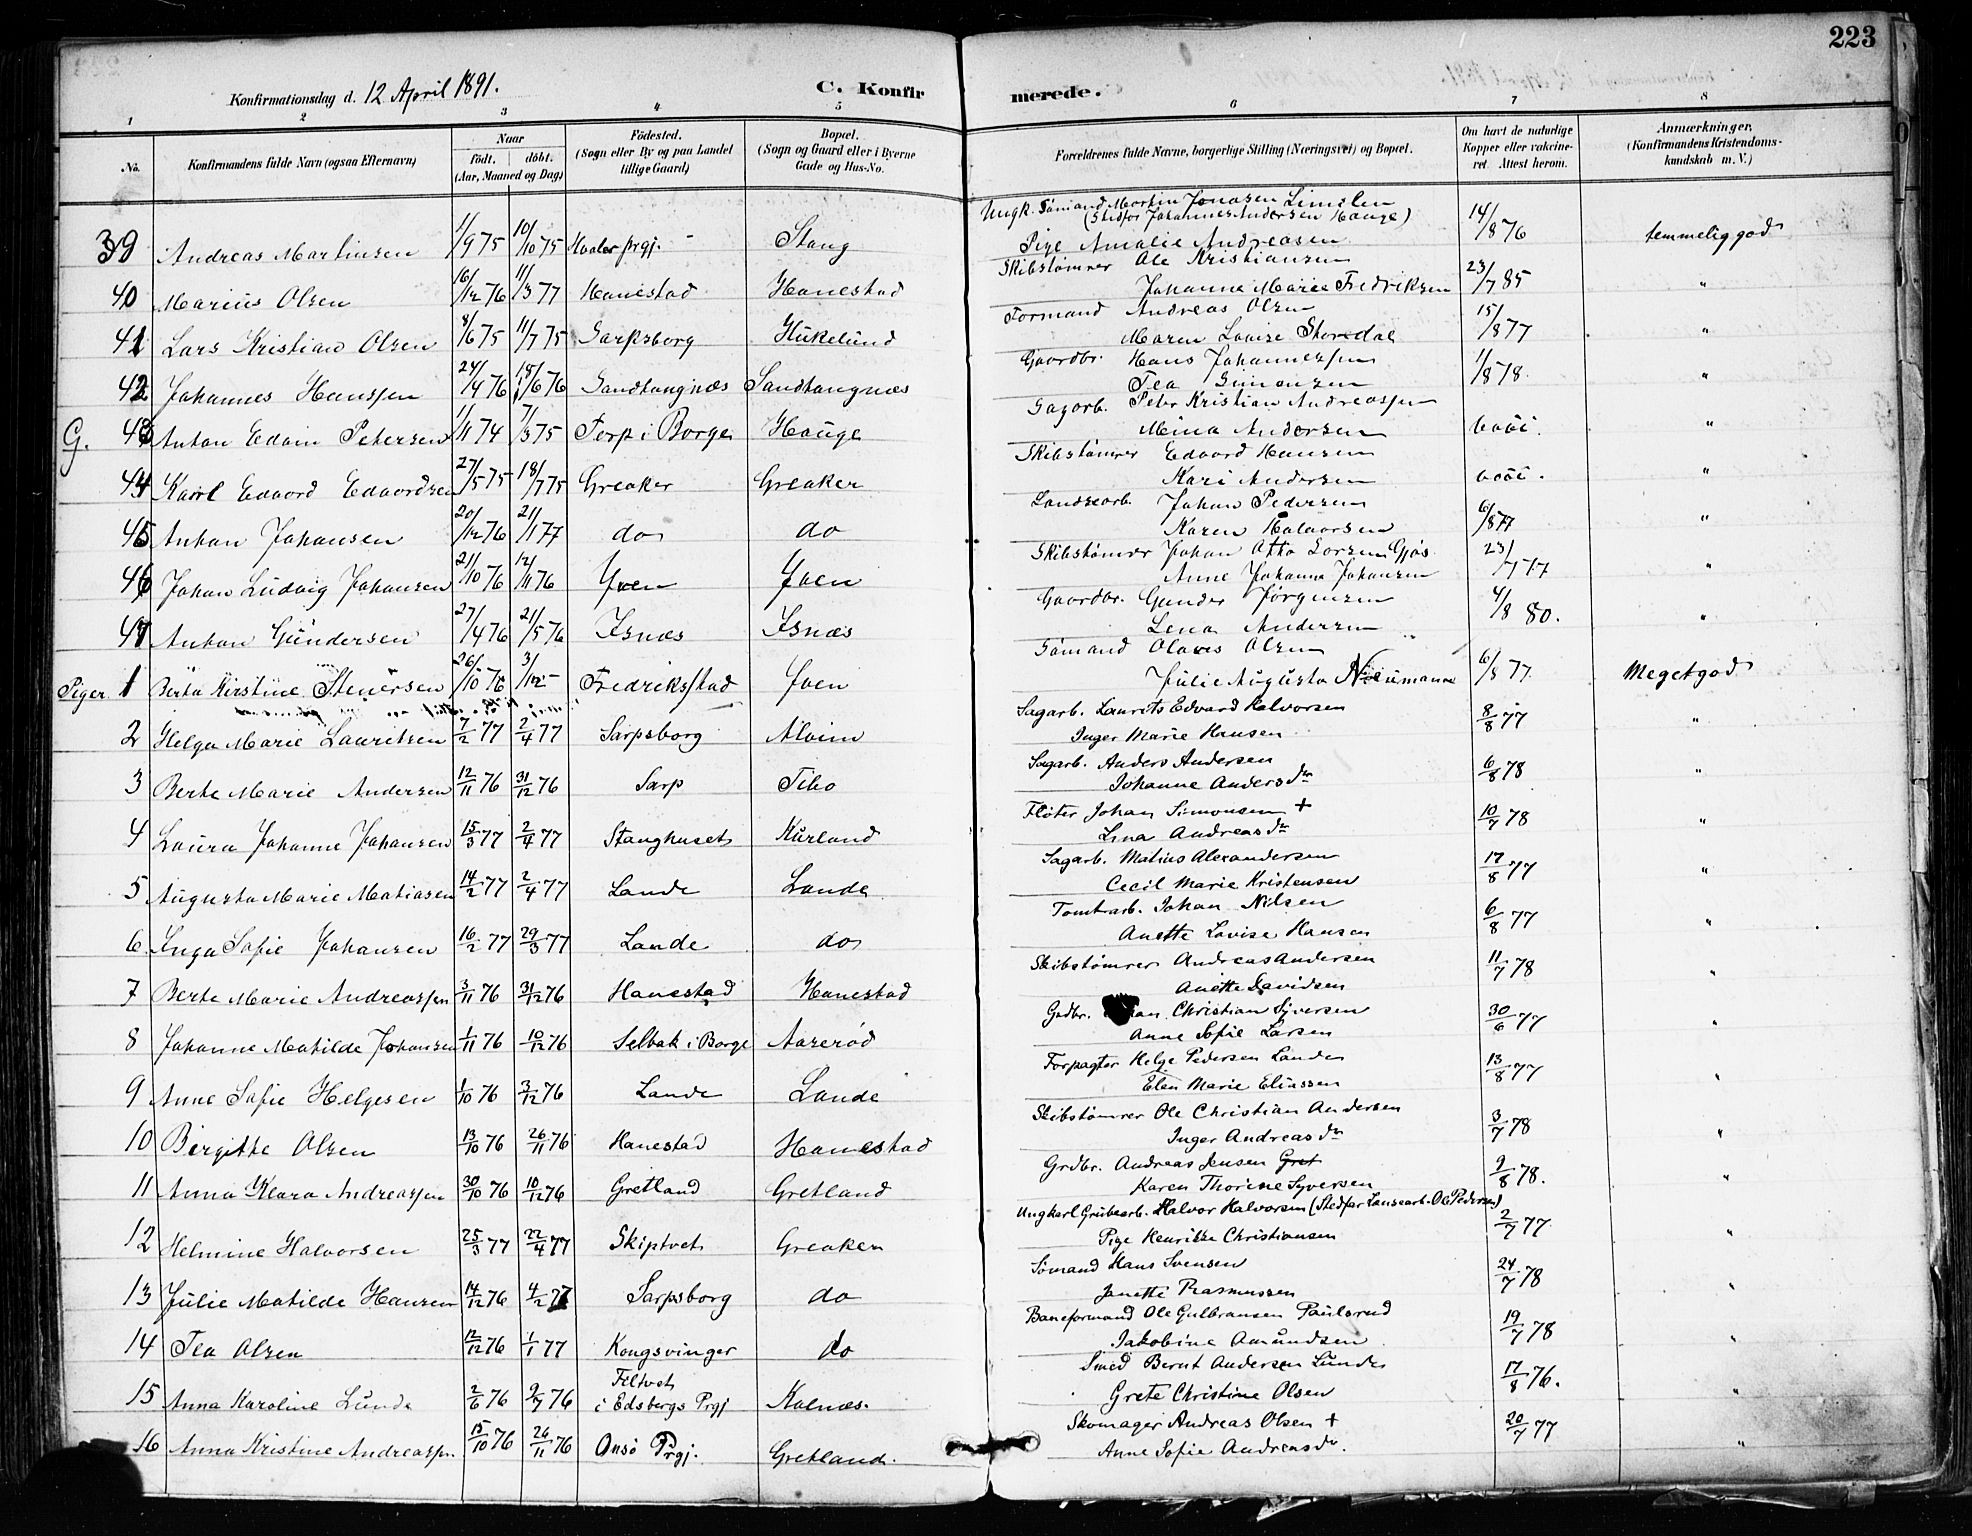 223
Konfirmationsdag d. 12 April 1891. C. Konfirmerede.
1 2 3 4 5 6 7 8
No. Konfirmandens fulde Navn (ogsaa Efternavn) Naar født. døbt. (Aar, Maaned og Dag) Fødested. (Sogn eller By og paa Landet tillige Gaard) Bopæl. (Sogn og Gaard eller i Byerne Gade og Hus-No. Forældrenes fulde Navne, borgerlige Stilling (Næringsvei) og Bopæl. Om havt de naturlige Kopper eller vakcineret. Attest herom. Anmærkninger. (Konfirmandens Kristendomskundskab m. V.)
Ungk. Sømand Martin Jonasen
(Stedfar Johannes Andersen Hauge)
39 Andreas Martinsen 1/9 75 10/10 75 Hvaler prgj. Stang Pige Amalie Andreasen 14/8 76 temmelig god
Skibstømrer Ole Kristiansen
40 Marius Olsen 16/12 76 11/3 77 Hanestad Hanestad Johanne Marie Fredriksen 23/7 85 "
Formand Andreas Olsen
41 Lars Kristian Olsen 8/6 75 11/7 75 Sarpsborg Hukelund Maren Lovise Storedal 15/8 77 "
Gaardbr. Hans Johannessen
42 Johannes Hanssen 24/4 76 18/6 76 Sandtangnæs Sandtangnæs Tea Simensen 1/8 78. "
Sagarb. Peter Kristian Andreassen
G. 43 Anton Edvin Petersen 1/11 74 7/3 75 Torp i Borge Hauge Mina Andersen "
Skibstømrer Edvard Hansen
44 Karl Edvard Edvardsen 27/5 75 18/7 75 Greaker Greaker Kari Andersen "
Landsearb. Johan Pedersen
45 Anton Johansen 20/12 76 21/1 77 do do Karen Halvorsen 6/8 77 "
Skibstømrer Johan Otto Larsen
46 Johan Ludvig Johansen 21/10 76 12/11 76 Yven Yven Anne Johanne Johansen 23/7 77 "
Gaardbr. Gunder Jørgensen
47 Anton Gundersen 27/4 76 21/5 76 Isnæs Isnæs Lena Andersen 4/8 80. "
Sømand Olaves Olsen
Piger 1 Berta Kirstine Stenersen 26/10 76 3/12 Fredriksstad Yven Julie Augusta Neumann 6/8 77. Meget god
Sagarb. Laurits Edvard Halvorsen
2 Helga Marie Lauritsen 7/2 77 2/4 77 Sarpsborg Alvim Inger Marie Hansen 8/8 77 "
Sagarb. Anders Andersen
3 Berte Marie Andersen 12/11 76 31/12 76 Sarp Tibo Johanne Andersdr 6/8 78 "
Fløter Johan Simonsen +
4 Laura Johanne Johansen 15/3 77 2/4 77 Stanghuset Kurland Lina Andreasdr 10/7 78 "
Sagarb. Matius Alexandersen
5 Augusta Marie Matiasen 14/2 77 2/4 77 Lande Lande Cecil Marie Kristensen 17/8 77 "
Tomtarb. Johan Nilsen
6 Inga Sofie Johansen 16/2 77 29/3 77 Lande do Anette Lovise Hansen 6/8 77 "
Skibstømrer Andreas Andersen
7 Berte Marie Andreassen 3/11 76 31/12 76 Hanestad Hanestad Anette Davidsen 11/7 78 "
Grdbr. Christian Syversen
8 Johanne Matilde Johansen 1/11 76 10/12 76 Selbak i Borge Aaserød Anne Sofie Larsen 30/6 77 "
Forpagter Helge Pedersen Lande
9 Anne Sofie Helgesen 1/10 76 3/12 76 Lande Lande Elen Marie Eliassen 13/8 77 "
Skibstømrer Ole Christian Andersen
10 Birgitte Olsen 13/10 76 26/11 76 Hanestad Hanestad Inger Andreasdr 3/7 78 "
Grdbr. Andreas Jensen Gret
11 Anna Klara Andreassen 30/10 76 10/12 76 Gretland Gretland Karen Thorine Syversen 9/8 78. "
Ungkarl Grubearb. Halvor Halvorsen (Stedfar Lansearb. Ole Pedersen)
12 Helmine Halvorsen 25/3 77 22/4 77 Skiptvet Greaker Pige Henrikke Christiansen 2/7 77 "
Sømand Hans Svensen
13 Julie Matilde Hansen 14/12 76 4/2 77 Sarpsborg do Janette Rasmussen 24/7 78 "
Baneformand Ole Gulbransen Paulsrud
14 Tea Olsen 12/12 76 1/1 77 Kongsvinger do Jakobine Amundsen 19/7 78 "
Smed Bernt Andersen Lunde
15 Anna Karoline Lunde 2/6 76 9/7 76 Filtvet i Edsbergs Prgj Kalnæs. Grete Christine Olsen 17/8 76. "
Skomager Andreas Olsen +
16 Anna Kristine Andreassen. 15/10 76 26/11 76 Onsø Prgj. Gretland. Anne Sofie Andreasdr. 20/7 77 "